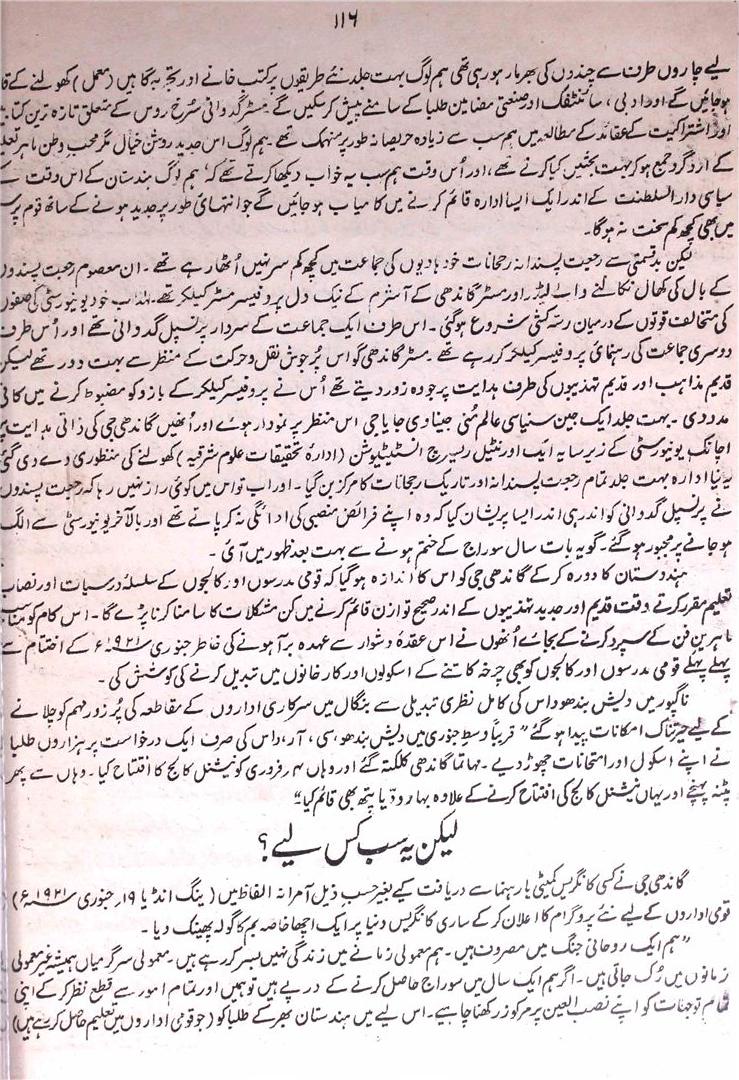 ۱۱۶
لیے چاروں طرف سے چندوں کی بھرمار ہو رہی تھی ہم لوگ بہت جلد نئے طریقوں پر کتب خانے اور تجربہ گاہیں (معمل) کھولنے کے
ہو جائیں گے اور ادبی، سائنٹفک اور صنعتی مضامین طلبا کے سامنے پیش کر سکیں گے۔ مسٹر گدوانی سُرخ روس کے متعلق تازہ ترین
اور اشتراکیت کے عقائد کے مطالعہ میں ہم سب سے زیادہ حریصانہ طور پر منہمک تھے۔ ہم لوگ اس جدید روشن خیال مگر محبِ وطن ماہر
کے اردگرد جمع ہو کر بہت بحثیں کیا کرتے تھے، اور اُس وقت ہم سب یہ خواب دیکھا کرتے تھے کہ ہم لوگ ہندستان کے اس وقت
سیاسی دار السلطنت کے اندر ایک ایسا ادارہ قائم کرنے میں کامیاب ہو جائیں گے جو انتہائی طور پر جدید ہونے کے ساتھ قوم
میں بھی کچھ کم سخت نہ ہوگا۔
لیکن بدقسمتی سے رجعت پسندانہ رجحانات خود ہادیوں کی جماعت میں کچھ کم سر نہیں اُٹھا رہے تھے۔ ان معصوم رجعت پسندوں
کے بال کی کھال نکالنے والے لیڈر اور مسٹر گاندھی کے آشرم کے نیک دل پروفیسر مسٹر کیلکر تھے۔ لہٰذا اب خود یونیورسٹی کی صفوں
کی متخالف قوتوں کے درمیان رسہ کشی شروع ہوگئی۔ اس طرف ایک جماعت کے سردار پرنسپل گدوانی تھے اور اُس طرف
دوسری جماعت کی رہنمائی پروفیسر کیلکر کر رہے تھے۔ مسٹر گاندھی گو اس پُرجوش نقل و حرکت کے منظر سے بہت دور تھے لیکن
قدیم مذاہب اور قدیم تہذیبوں کی طرف ہدایت پر جو وہ زور دیتے تھے اُس نے پروفیسر کیلکر کے بازو کو مضبوط کرنے میں کافی
مدد دی۔ بہت جلد ایک جین سنیاسی عالم مُنی جیناوی جایا جی اس منظر پر نمودار ہوے اور اُنھیں گاندھی جی کی ذاتی ہدایت پر
اچانک یونیورسٹی کے زیر سایہ ایک اورنٹیل ریسرچ انسٹیٹیوشن (ادارۂ تحقیقات علوم شرقیہ) کھولنے کی منظوری دے دی گئی
یہ نیا ادارہ بہت جلد تمام رجعت پسندانہ اور تاریک رجحانات کا مرکز بن گیا۔ اور اب تو اس میں کوئی راز نہیں رہا کہ رجعت پسندوں
نے پرنسپل گدوانی کو اندر ہی اندر ایسا پریشان کیا کہ وہ اپنے فرائض منصبی کی ادائگی نہ کر پاتے تھے اور بالآخر یونیورسٹی سے الگ
ہو جانے پر مجبور ہوگئے۔ گو یہ بات سال سوراج کے ختم ہونے سے بہت بعد ظہور میں آئی۔
ہندوستان کا دورہ کر کے گاندھی جی کو اس کا اندازہ ہوگیا کہ قومی مدرسوں اور کالجوں کے سلسلۂ درسیات اور نصاب
تعلیم مقرر کرتے وقت قدیم اور جدید تہذیبوں کے اندر صحیح توازن قائم کرنے میں کن مشکلات کا سامنا کرنا پڑے گا۔ اس کام کو مناسب
ماہرین فن کے سپرد کرنے کے بجائے اُنھوں نے اس عقدۂ دشوار سے عہدہ برآ ہونے کی خاطر جنوری ۱۹۲۱ء کے اختتام سے
پہلے پہلے قومی مدرسوں اور کالجوں کو بھی چرخہ کاتنے کے اسکولوں اور کارخانوں میں تبدیل کرنے کی کوشش کی۔
ناگپور میں دیش بندھو داس کی کامل نظری تبدیلی سے بنگال میں سرکاری اداروں کے مقاطعہ کی پُر زور مہم کو چلانے
کے لیے حیرتناک امکانات پیدا ہوگئے ”قریباً وسط جنوری میں دیش بندھو، سی، آر، داس کی صرف ایک درخواست پر ہزاروں طلبا
نے اپنے اسکول اور امتحانات چھوڑ دیے۔ مہاتما گاندھی کلکتہ گئے اور وہاں ۴ فروری کو نیشنل کالج کا افتتاح کیا۔ وہاں سے پھر
پٹنہ پہنچے اور یہاں نیشنل کالج کی افتتاح کرنے کے علاوہ بہار ودیا پتھ بھی قائم کیا“
لیکن یہ سب کس لیے؟
گاندھی جی نے کسی کانگریس کمیٹی یا رہنما سے دریافت کیے بغیر حسب ذیل آمرانہ الفاظ میں (ینگ انڈیا ۱۹ جنوری ۱۹۲۱ء)
قومی اداروں کے لیے نئے پروگرام کا اعلان کر کے ساری کانگریس دنیا پر ایک اچھا خاصہ بم کا گولہ پھینک دیا۔
”ہم ایک روحانی جنگ میں مصروف ہیں۔ ہم معمولی زمانے میں زندگی نہیں بسر کر رہے ہیں۔ معمولی سرگرمیاں ہمیشہ غیر معمولی
زمانوں میں رُک جاتی ہیں۔ اگر ہم ایک سال میں سوراج حاصل کرنے کے درپے ہیں تو ہمیں اور تمام امور سے قطع نظر کر کے اپنی
تمام توجہات کو اپنے نصب العین پر مرکوز رکھنا چاہیے۔ اس لیے میں ہندستان بھر کے طلبا کو (جو قومی اداروں میں تعلیم حاصل کر رہے ہیں)